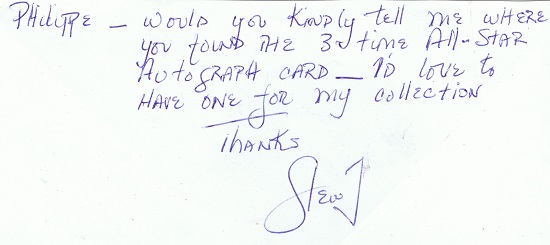 PHilippe – Would you Kindly tell me where
you found the 3d time All-Star
Autograph Card – I'd love to
Have one for my collection
Thanks
Stew J